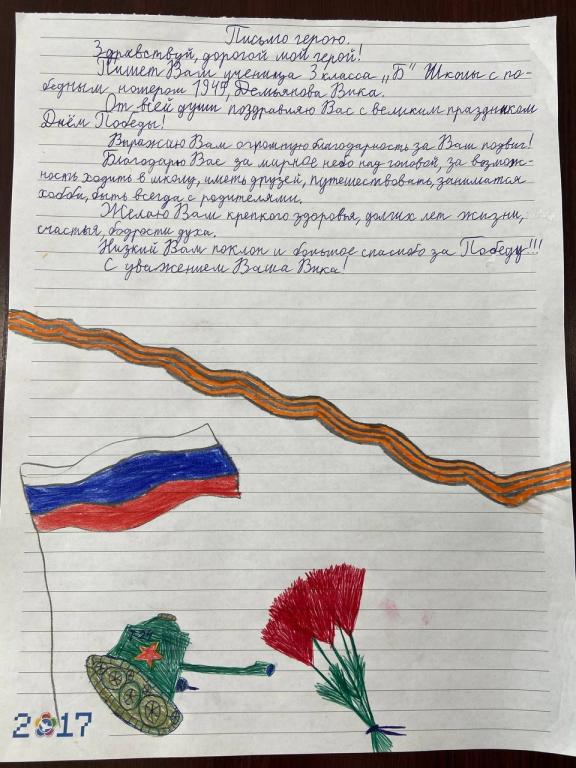 Письмо герою.
Здравствуй, дорогой мой герой!
Пишет Вам ученица 3 класса „Б" Школы с по-
бедным номером 1945, Демьянова Вика.
От всей души поздравляю Вас с великим праздником
Днём Победы!
Выражаю Вам огромную благодарность за Ваш подвиг!
Благодарю Вас за мирное небо над головой, за возмож-
ность ходить в школу, иметь друзей, путешествовать, заниматся
хобби, быть всегда с родителями.
Желаю Вам крепкого здоровья, долгих лет жизни,
счастья, бодрости духа.
Низкий Вам поклон и большое спасибо за Победу!!!
С уважением Ваша Вика!
2017